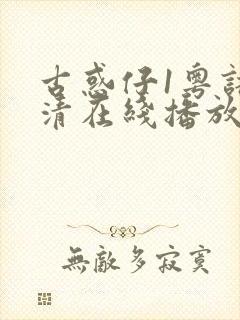 古惑仔1粤語
清在綫播放
無敵多寂寞